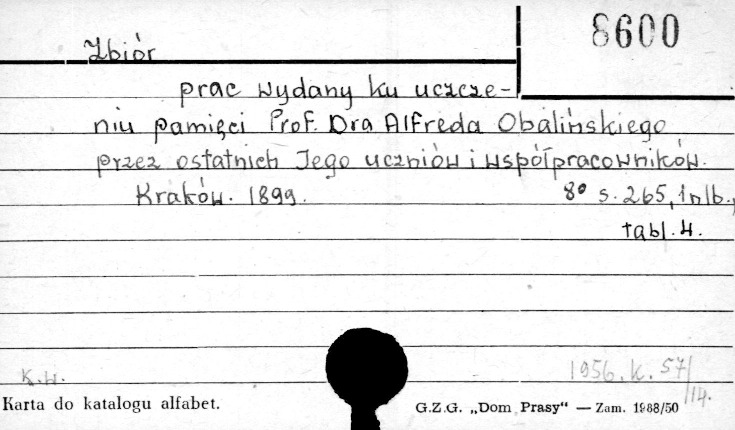 8600
Zbiór
prac wydany ku uczcze-
niu pamięci Prof. Dra Alfreda Obalińskiego
przez ostatnich Jego uczniów i współpracowników.
Kraków. 1899. 8° s. 265, 1 nlb.,
tabl. 4.
K.W. 1956. K. 57/14.
Karta do katalogu alfabet. G.Z.G. „Dom Prasy“ — Zam. 1988/50